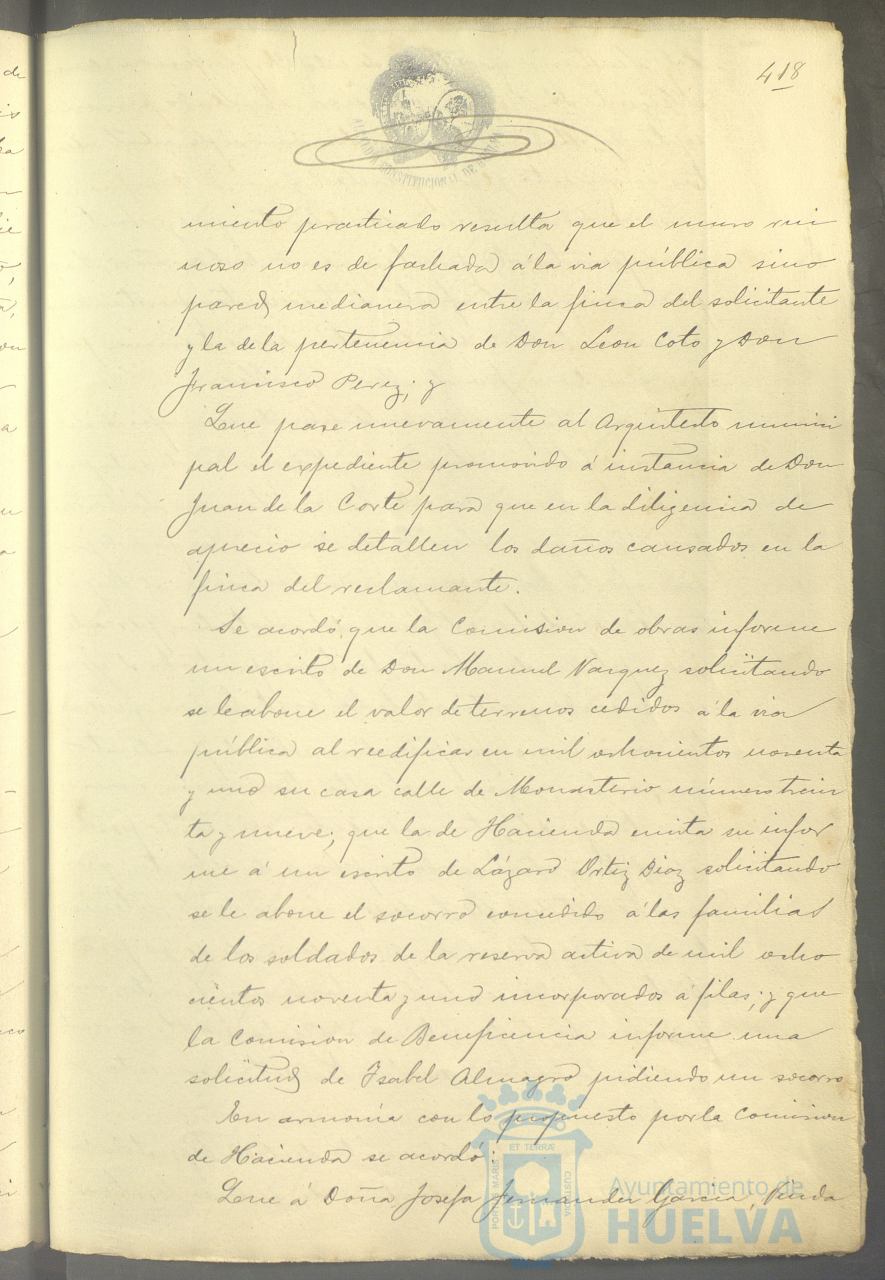 418
CONSTITUCIONAL DE
miento practicado resulta que el muro rui
noso no es de fachada á la via pública sino
pared medianera entre la finca del solicitante
y la de la pertenencia de Don Leon Coto y Don
Francisco Perez; y
Que pase nuevamente al Arquitecto munici
pal el expediente promovido á instancia de Don
Juan de la Corte para que en la diligencia de
aprecio se detallen los daños causados en la
finca del reclamante.
Se acordó que la Comision de obras informe
un escrito de Don Manuel Vazquez solicitando
se le abone el valor de terrenos cedidos á la via
pública al reedificar en mil ochocientos noventa
y uno su casa calle de Monasterio número trein
ta y nueve; que la de Hacienda emita su infor
me á un escrito de Lázaro Ortiz Diaz solicitando
se le abone el socorro concedido á las familias
de los soldados de la reserva activa de mil ocho
cientos noventa y uno incorporados á filas; y que
la Comision de Beneficencia informe una
solicitud de Isabel Almagro pidiendo un socorro
En armonia con lo propuesto por la Comision
de Hacienda se acordó:
Que á Doña Josefa Fernandez Garcia, Viuda
PORTUS MARIS ET TERRÆ CUSTODIA
Ayuntamiento de
HUELVA